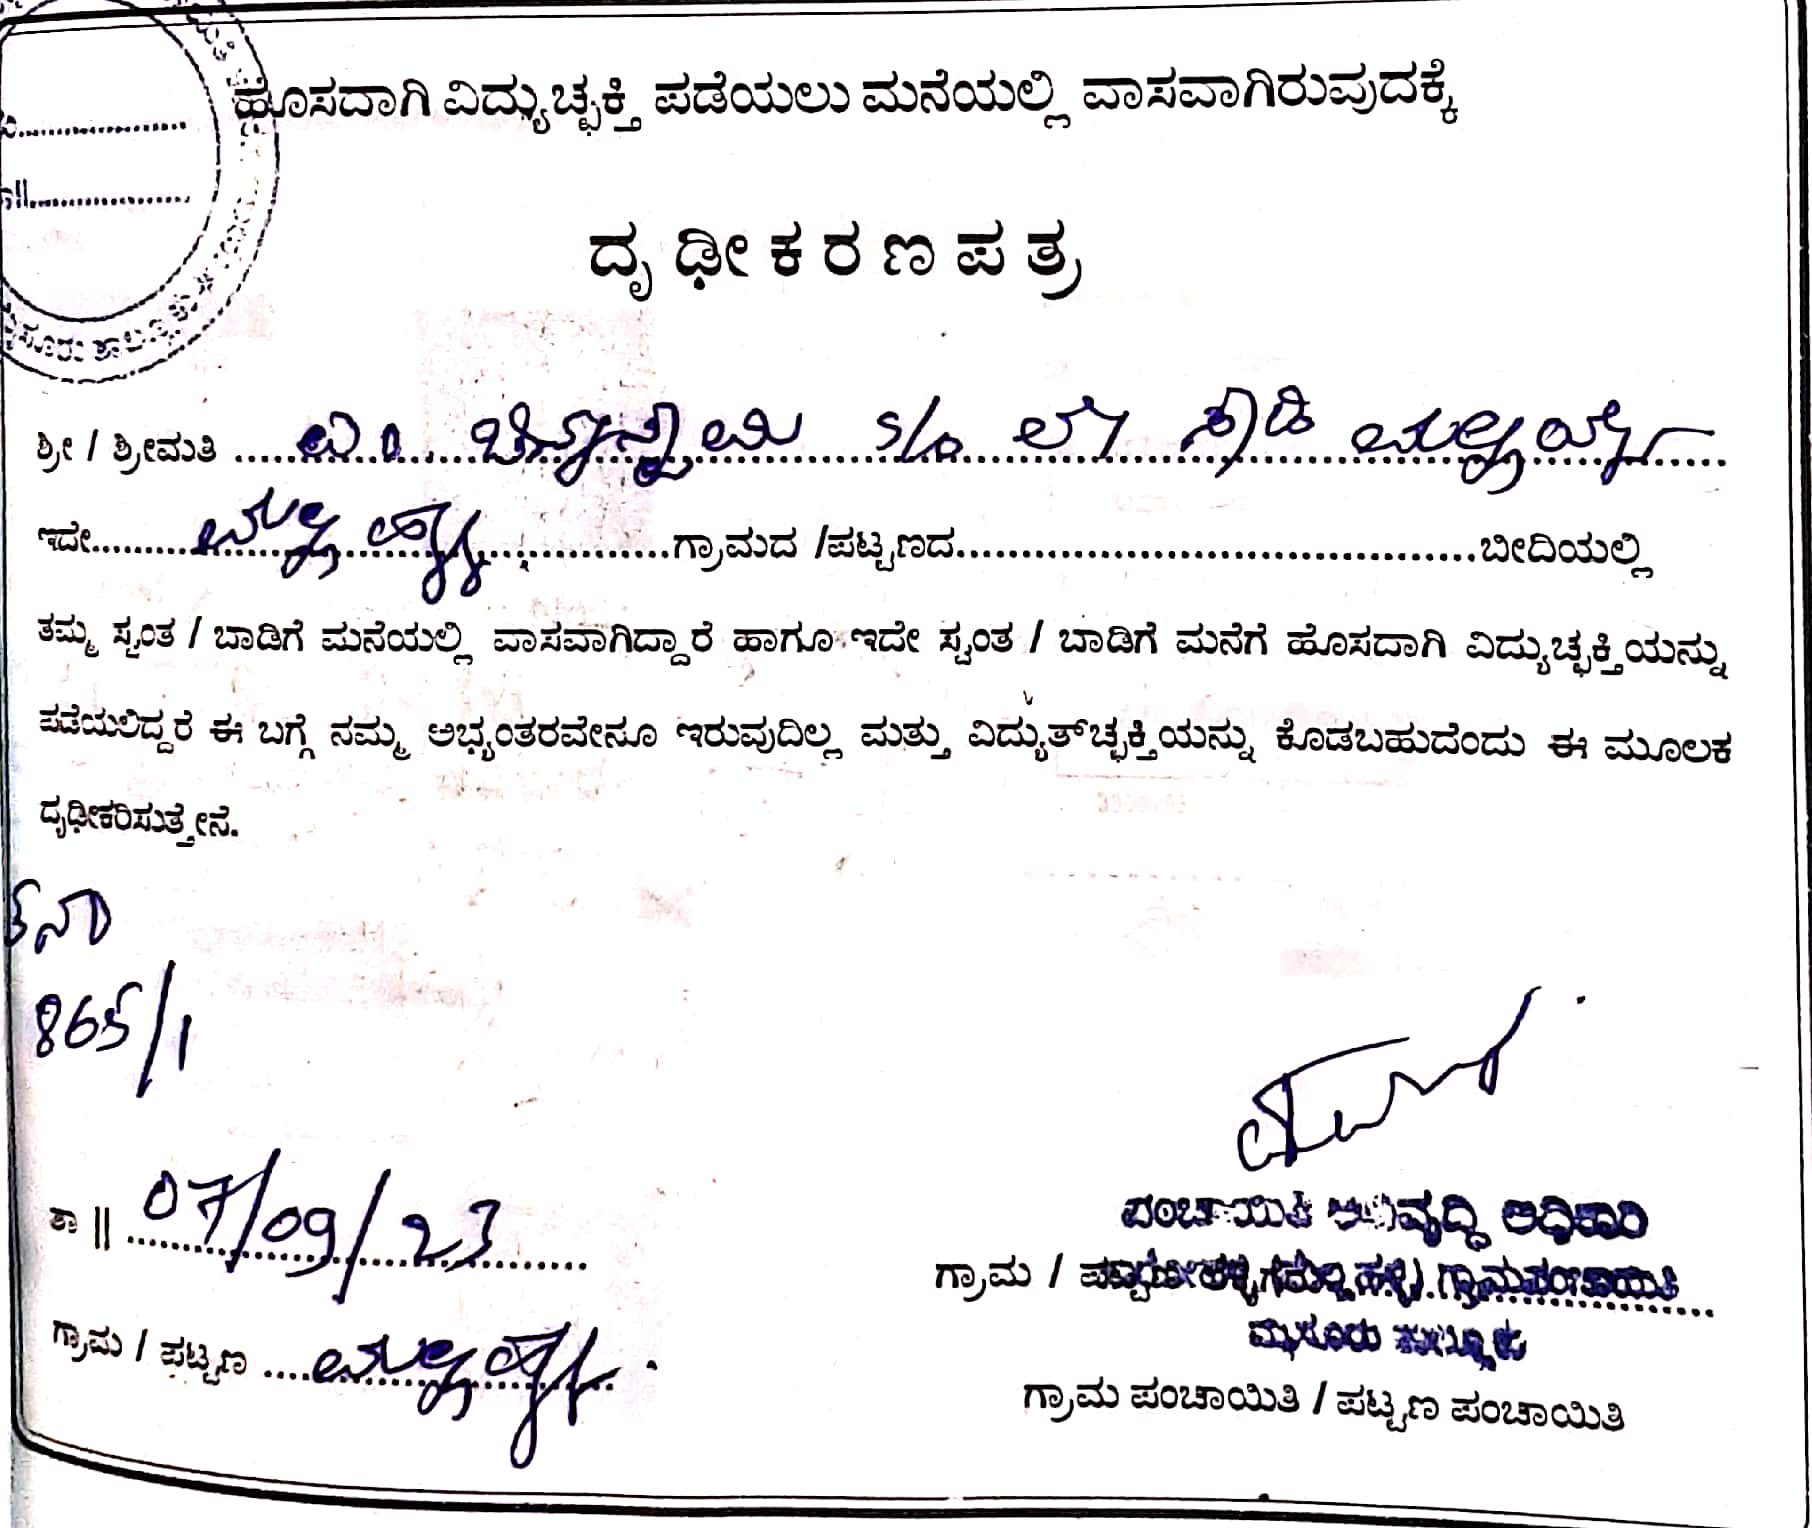 ಹೊಸದಾಗಿ ವಿದ್ಯುಚ್ಛಕ್ತಿ ಪಡೆಯಲು ಮನೆಯಲ್ಲಿ ವಾಸವಾಗಿರುವುದಕ್ಕೆ
ದೃಢೀಕರಣಪತ್ರ
ಶ್ರೀ / ಶ್ರೀಮತಿ ..... S/o ಲೇ
ಇದೇ..........ಗ್ರಾಮದ /ಪಟ್ಟಣದ..........ಬೀದಿಯಲ್ಲಿ
ತಮ್ಮ ಸ್ವಂತ / ಬಾಡಿಗೆ ಮನೆಯಲ್ಲಿ ವಾಸವಾಗಿದ್ದಾರೆ ಹಾಗೂ ಇದೇ ಸ್ವಂತ / ಬಾಡಿಗೆ ಮನೆಗೆ ಹೊಸದಾಗಿ ವಿದ್ಯುಚ್ಛಕ್ತಿಯನ್ನು
ಪಡೆಯಲಿದ್ದರೆ ಈ ಬಗ್ಗೆ ನಮ್ಮ ಅಭ್ಯಂತರವೇನೂ ಇರುವುದಿಲ್ಲ ಮತ್ತು ವಿದ್ಯುತ್‌ಚ್ಛಕ್ತಿಯನ್ನು ಕೊಡಬಹುದೆಂದು ಈ ಮೂಲಕ
ದೃಢೀಕರಿಸುತ್ತೇನೆ.
865/1
ತಾ || 07/09/23
ಪಂಚಾಯಿತಿ ಅಭಿವೃದ್ಧಿ ಅಧಿಕಾರಿ
ಗ್ರಾಮ / ಗ್ರಾಮಪಂಚಾಯಿತಿ
ಮೈಸೂರು ತಾಲ್ಲೂಕು
ಗ್ರಾಮ / ಪಟ್ಟಣ ....
ಗ್ರಾಮ ಪಂಚಾಯಿತಿ / ಪಟ್ಟಣ ಪಂಚಾಯಿತಿ